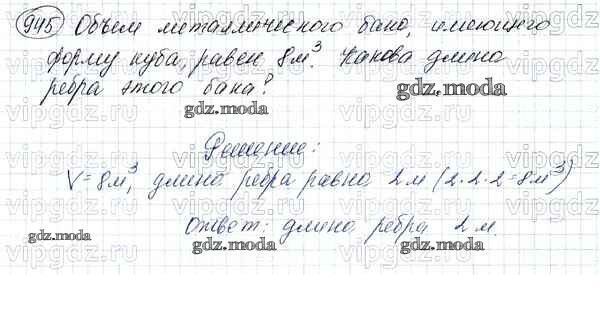 945 Объем металлического бака, имеющего
форму куба, равен 8м³. Какова длина
ребра этого бака?
gdz.moda gdz.moda
Решение:
V=8м³, длина ребра равна 2м (2·2·2=8м³)
Ответ: длина ребра 2м.
gdz.moda gdz.moda gdz.moda gdz.moda